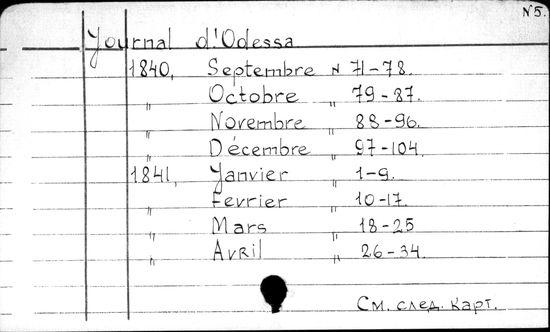 N5.
Journal d'Odessa
1840, Septembre N 71-78.
" Octobre " 79-87.
" Novembre " 88-96.
" Décembre " 97-104.
1841, Janvier " 1-9.
" Fevrier " 10-17.
" Mars " 18-25
" Avril " 26-34.
См. след. карт.